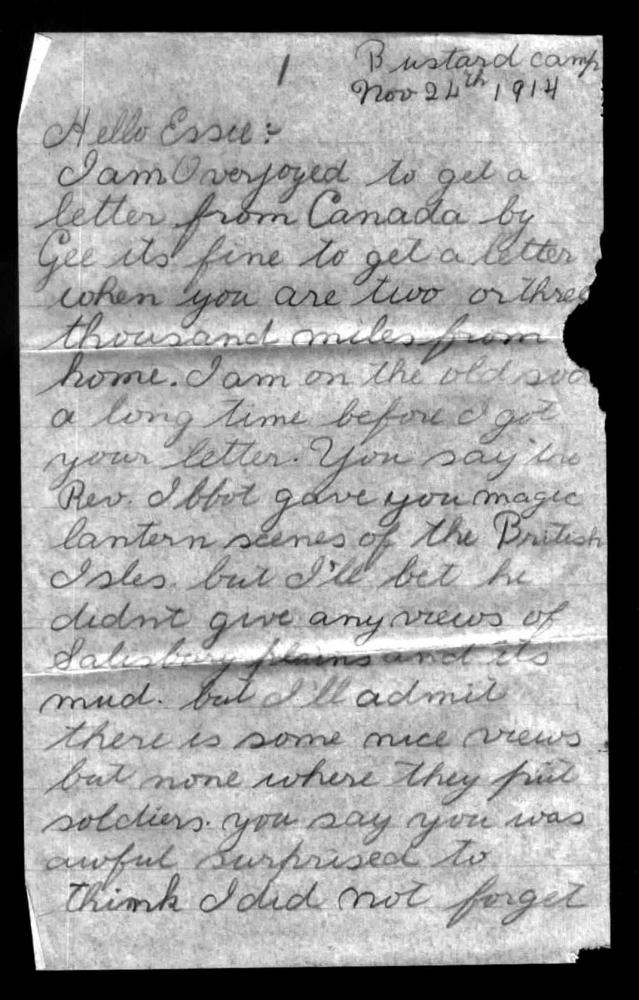 1
Bustard camp
Nov 24th 1914
Hello Essie:-
I am Overjoyed to get a
letter from Canada by
Gee its fine to get a letter
when you are two or three
thousand miles from
home. I am on the old sod
a long time before I got
your letter. You say
Rev. Ibbot gave you magic
lantern scenes of the British
Isles. but I'll bet he
didnt give any views of
Salisbury plains and its
mud. but I'll admit
there is some nice views
but none where they put
soldiers. you say you was
awful surprised to
think I did not forget